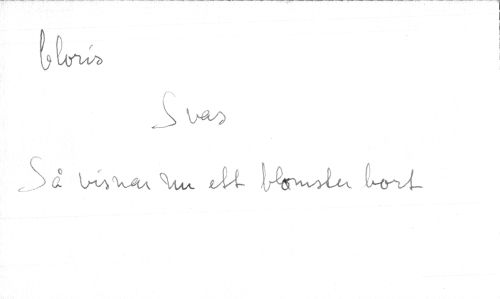 Cloris
Svas
Så visnar nu ett blomster bort